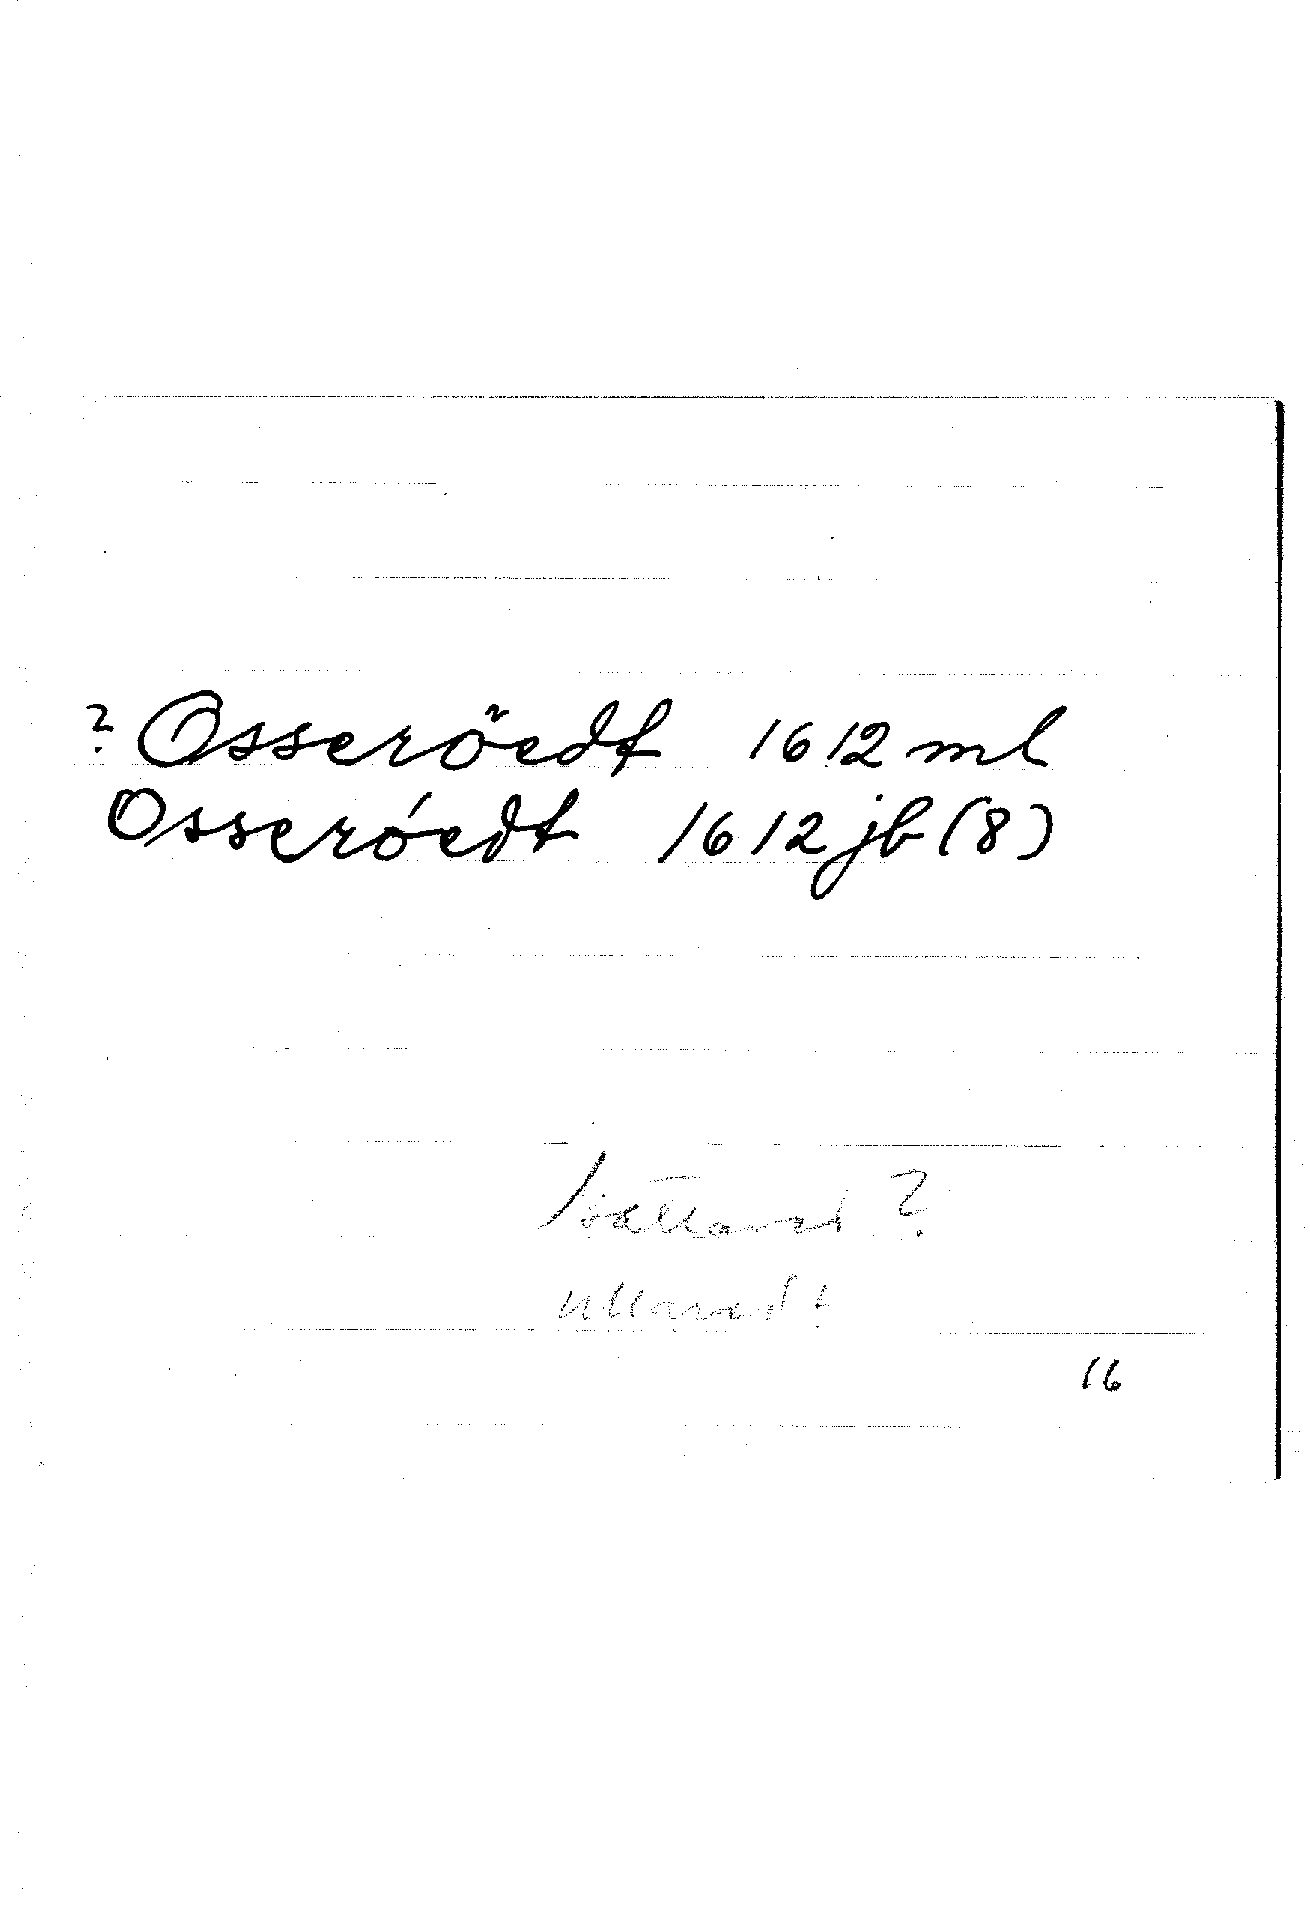 ? Osseröedt 1612 ml
Osseróedt 1612 jb (8)
?
Ullared!
16